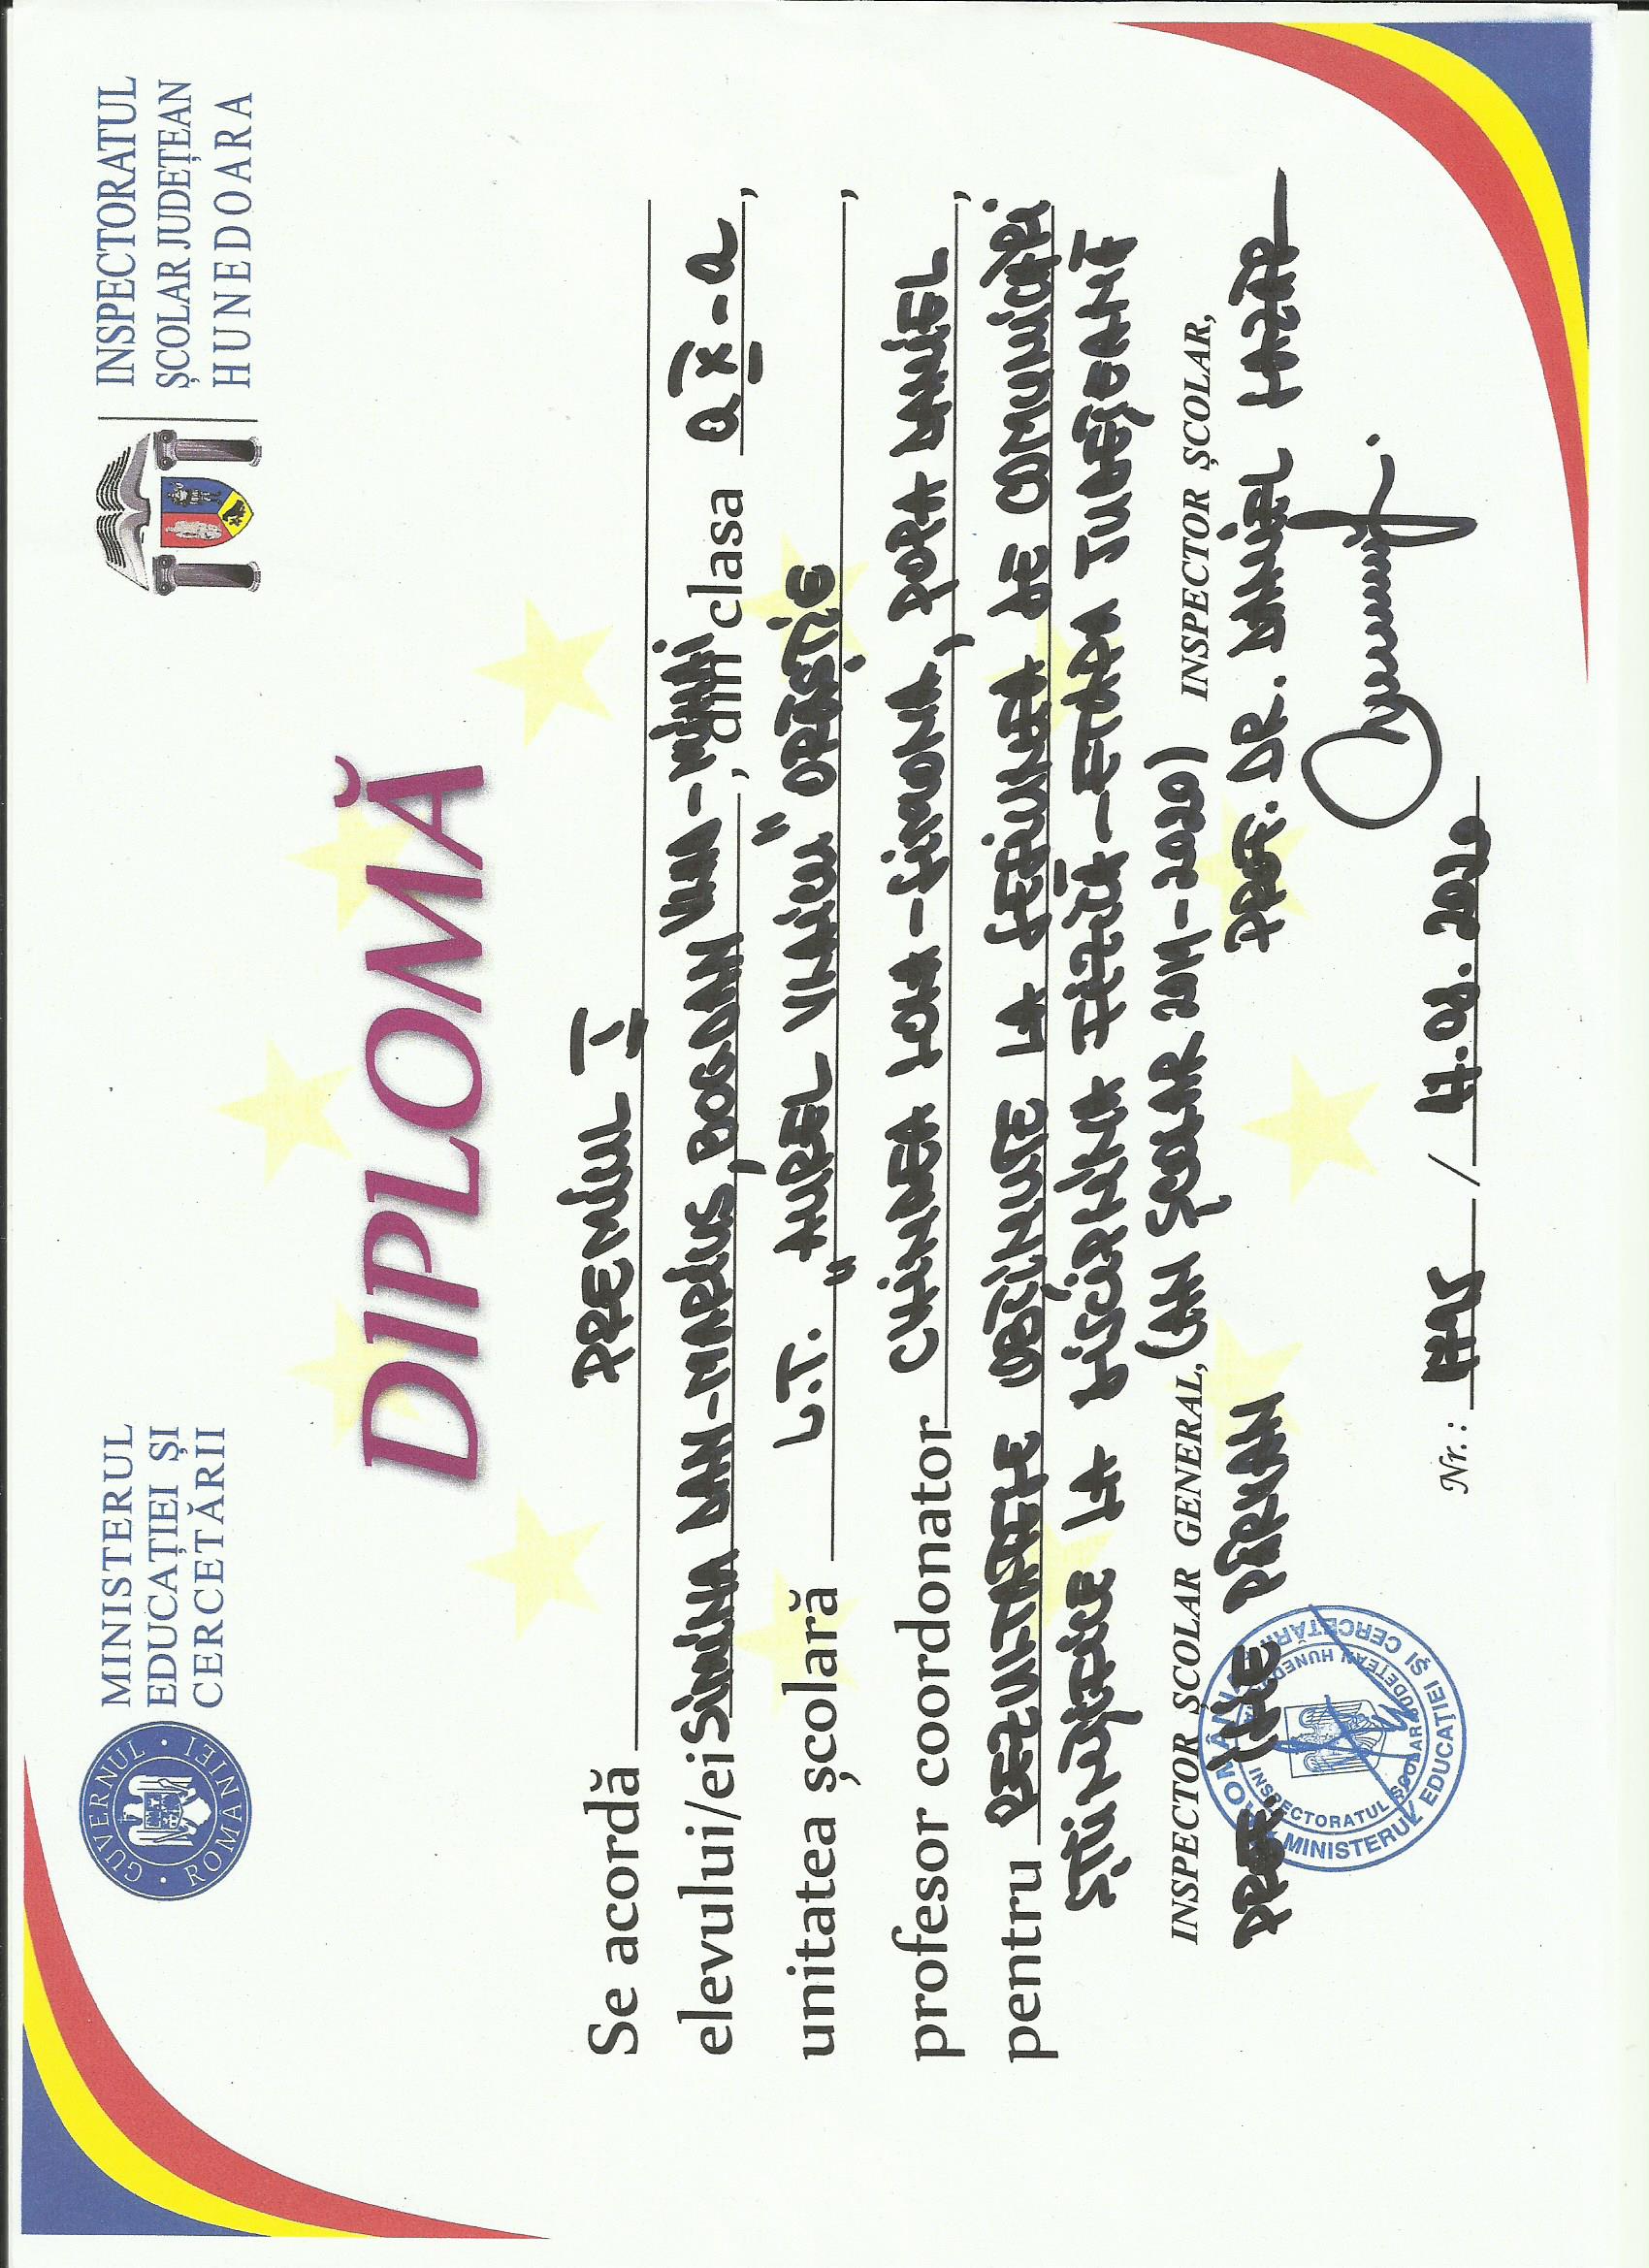 GUVERNUL ROMÂNIEI
MINISTERUL
EDUCAȚIEI ȘI
CERCETĂRII
INSPECTORATUL
ȘCOLAR JUDEȚEAN
HUNEDOARA
DIPLOMĂ
Se acordă PREMIUL I
elevului/ei SIMINA DAN-MARIUS, BOGDAN VLAD-MIHAI, din clasa a X-a,
unitatea școlară L.T. „AUREL VLAICU" ORĂȘTIE,
profesor coordonator CHINDEA -SIMONA, POPA DANIEL,
pentru REZULTATELE OBȚINUTE LA SESIUNEA DE COMUNICĂRI
ȘTIINȚIFICE LA DISCIPLINA FIZICĂ-ETAPA JUDEȚEANĂ
(AN ȘCOLAR 2019-2020)
INSPECTOR ȘCOLAR GENERAL, INSPECTOR ȘCOLAR,
PROF. ILIE PÂRVAN PROF. DR. DANIEL LAZĂR
ROMÂNIA MINISTERUL EDUCAȚIEI ȘI CERCETĂRII
INSPECTORATUL ȘCOLAR JUDEȚEAN HUNEDOARA
Nr.: /